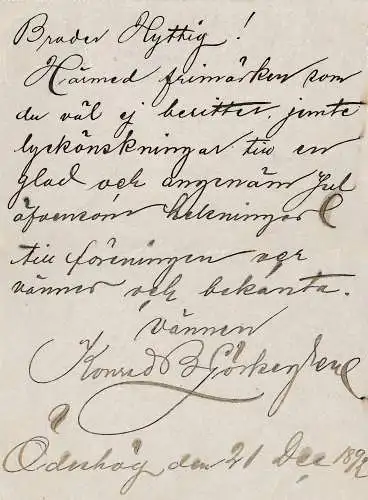 Broder Hyttig!
Härmed frimärken som
du väl ej besitter, jemte
lyckönskningar till en
glad och angenäm Jul
äfvensom helsningar
till föreningen
vänner och bekanta.
vännen
Konrad
Ödeshög den 21 Dec 1892